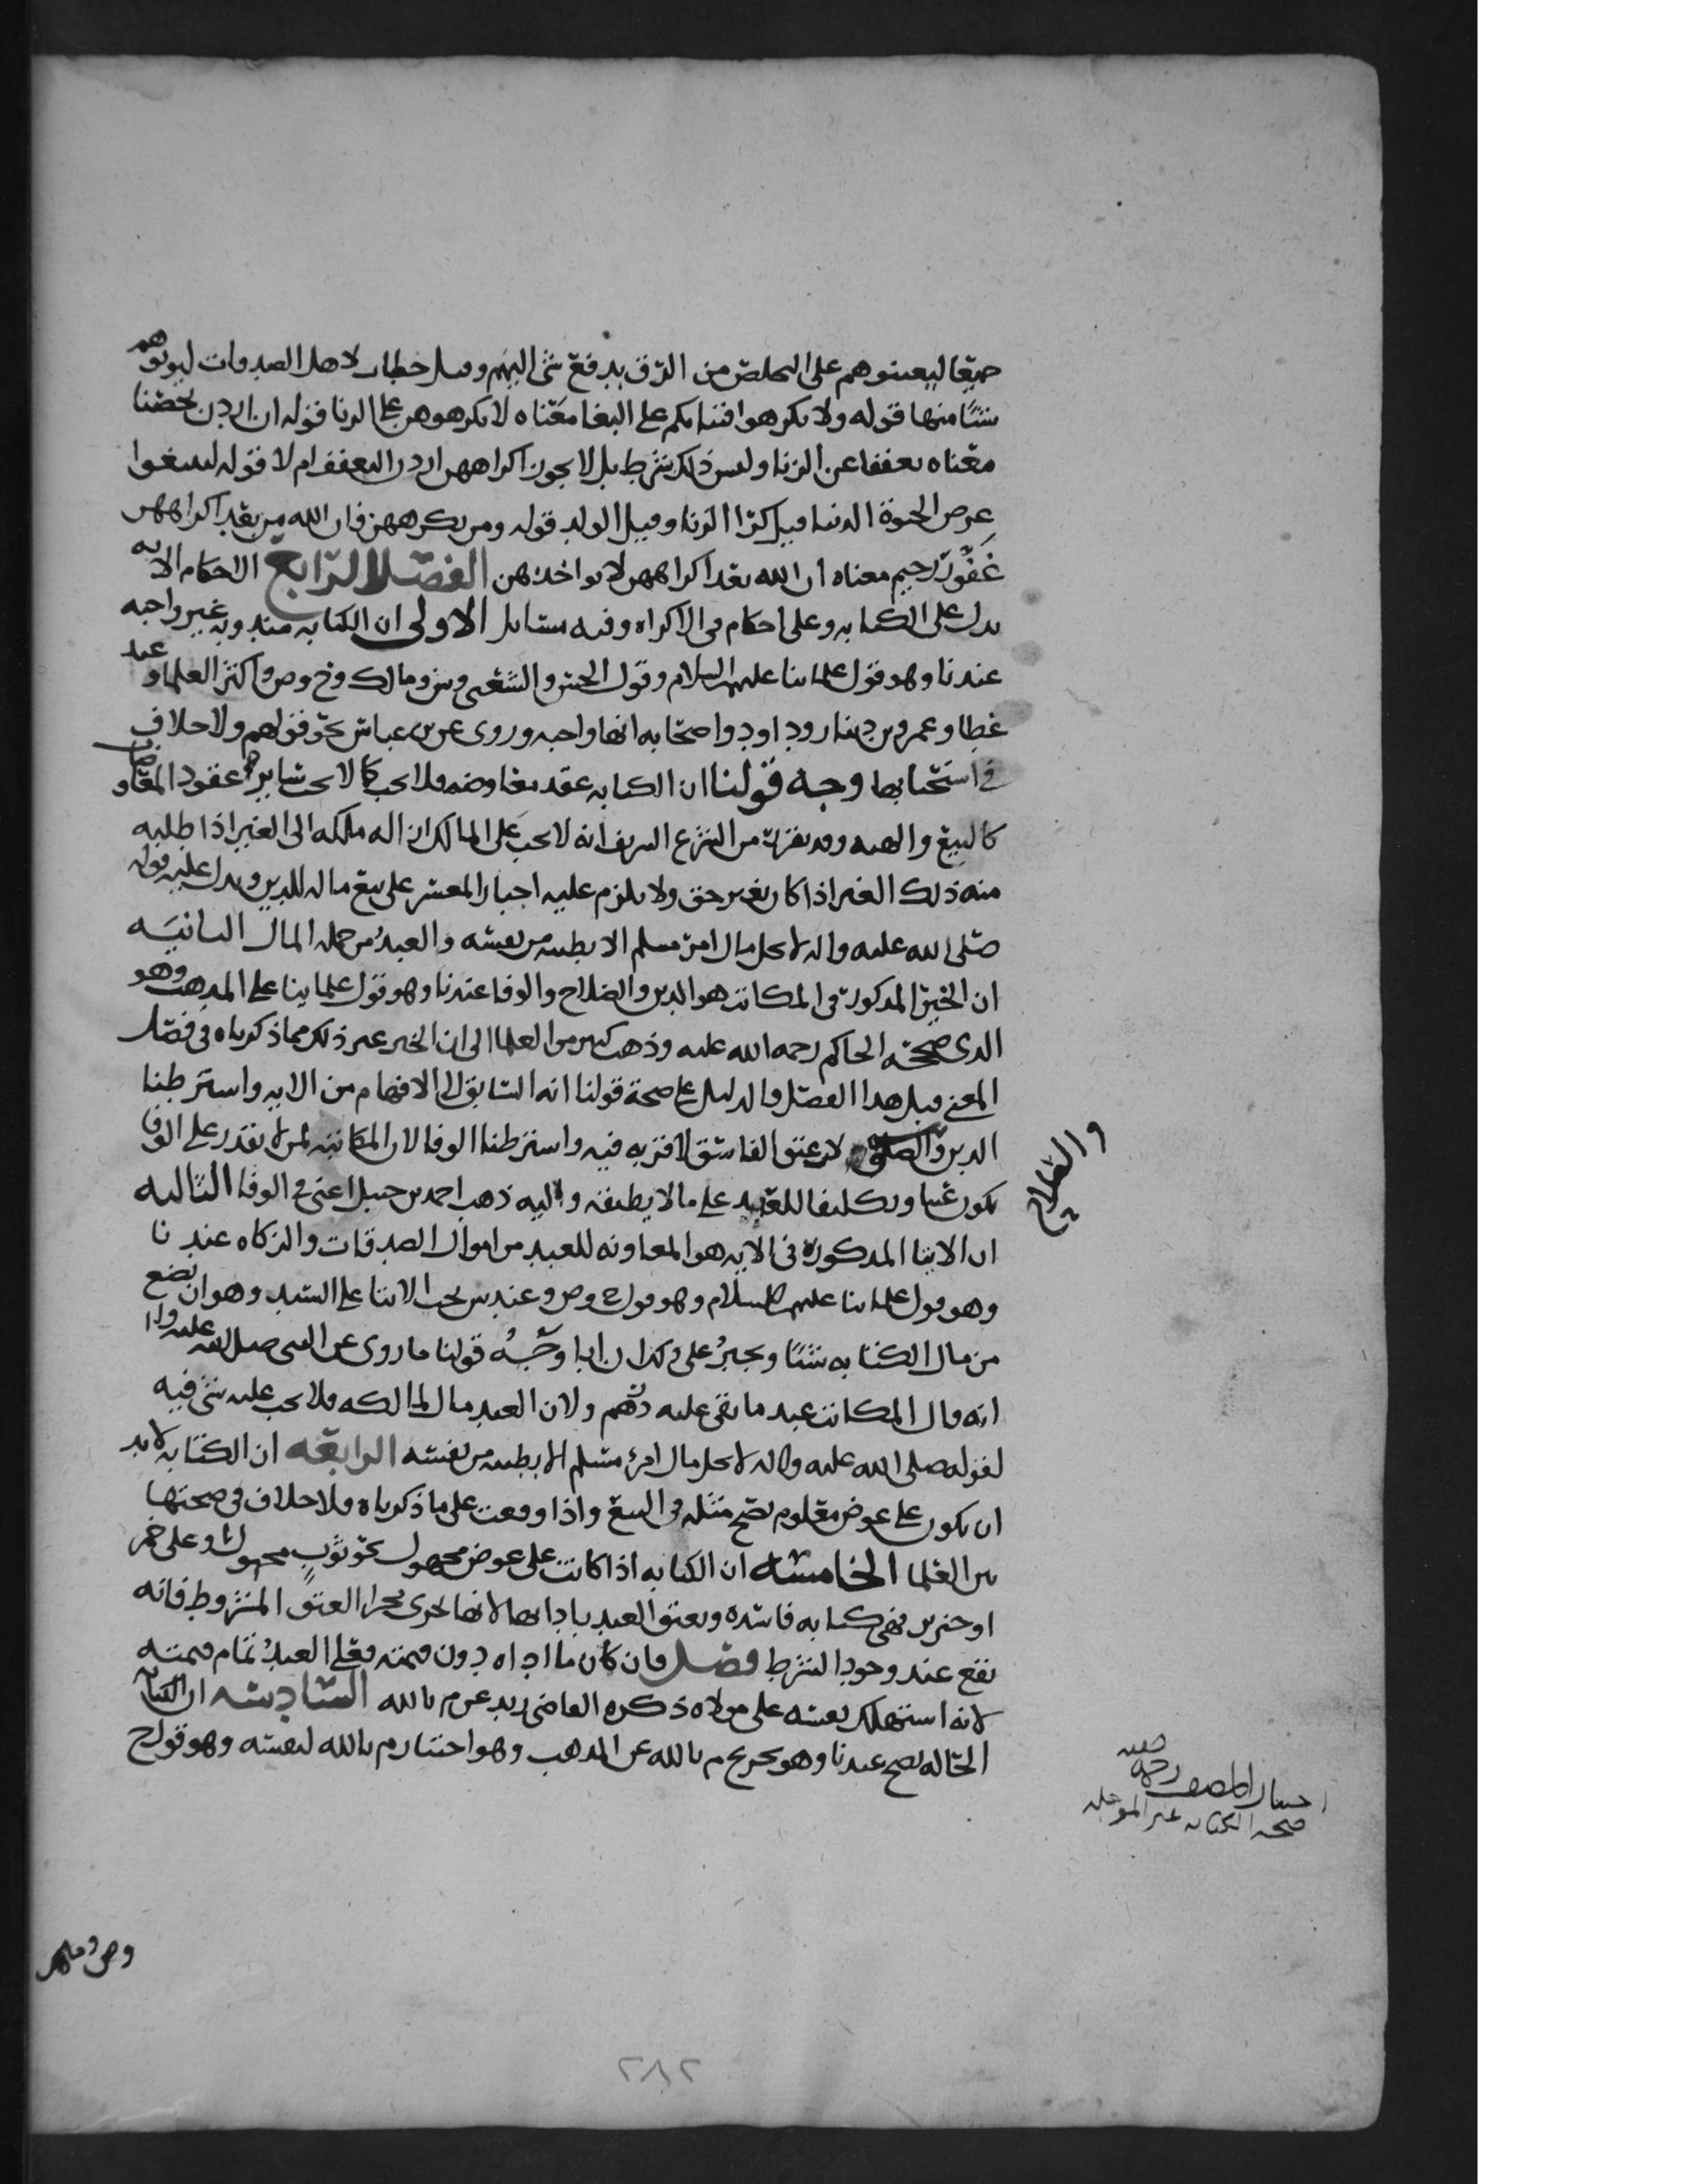 جميعا ليعينوهم على التخلص من الرق بدفع شى اليهم وقيل خطاب لاهل الصدقات ليوتوهم
شيئا منها قوله ولا تكرهوا فتياتكم على البغا معناه لا تكرهوهن على الزنا قوله ان اردن تحصنا
معناه تعففا عن الزنا وليس ذلك بشرط بل لا يجوز اكراههن اردن التعفف ام لا قوله لتبتغوا
عرض الحيوة الدنيا قيل كرا الزنا وقيل الولد قوله ومن يكرههن فان الله من بعد اكراههن
غفور رحيم معناه ان الله بعد اكراههن لا يواخذهن الفصل الرابع الاحكام الايه
تدل على الكتابه وعلى احكام في الاكراه وفيه مسايل الاولى ان الكتابه مندوبه غير واجبه
عندنا وهو قول علماينا عليهم السلام وقول الحسن والشعبى وش ومالك وح وص واكثر العلما وعند
عطا وعمرو بن دينار وداود واصحابه انها واجبه وروى عن بن عباس نحو قولهم ولا خلاف
في استحبابها وجه قولنا ان الكتابه عقد معاوضه فلا يجب كما لا يجب ساير عقود المعاوضات
كالبيع والهبه وقد تقرر من الشرع الشريف انه لا يجب على المالك ازاله ملكه الى الغير اذا طلبه
منه ذلك الغير اذا كان بغير حق ولا يلزم عليه اجبار المعسر على بيع ماله للدين ويدل عليه قوله
صلى الله عليه واله لا يحل مال امرء مسلم الا بطيبه من نفسه والعبد من جمله المال الثانيه
ان الخير المذكور في المكاتب هو الدين والصلاح والوفا عندنا وهو قول علماينا على المذهب وهو
الذى صححه الحاكم رحمه الله عليه وذهب كثير من العلما الى ان الخير غير ذلك مما ذكرناه في فصل
المعنى قبل هذا الفصل والدليل على صحة قولنا انه السابق الى الافهام من الايه واشترطنا
الدين والصلاح لان عتق الفاسق لا قربه فيه واشترطنا الوفا لان المكاتبه لمن لا يقدر على الوفا
يكون عبثا وتكليفا للعبد على ما لا يطيقه واليه ذهب احمد بن حنبل اعنى في الوفا الثالثه
ان الايتا المذكور في الايه هو المعاونه للعبد من اموال الصدقات والزكاه عندنا
وهو قول علماينا عليهم السلام وهو قول ح وص وعند ش يجب الايتا على السيد وهو ان يضع
من مال الكتابه شيئا ويجبر على ذلك ان ابا وجه قولنا ما روى عن النبى صلى الله عليه واله
انه قال المكاتب عبد ما بقى عليه درهم ولان العبد مال لمالكه فلا يجب عليه شى فيه
لقوله صلى الله عليه واله لا يحل مال امرء مسلم الا بطيبه من نفسه الرابعه ان الكتابه لا بد
ان يكون على عوض معلوم يصح مثله في البيع واذا وقعت على ما ذكرناه فلا خلاف في صحتها
بين العلما الخامسه ان الكتابه اذا كانت على عوض مجهول نحو ثوب مجهول او على خمر
او خنزير فهى كتابه فاسده ويعتق العبد بادايها لانها تجرى مجرا العتق المشروط فانه
يقع عند وجود الشرط فصل فان كان ما اداه دون قيمته فعلى العبد تمام قيمته
لانه استهلك نفسه على مولاه ذكره القاضى زيد عن م بالله السادسه ان الكتابه
الحاله تصح عندنا وهو تخريج م بالله عن المذهب وهو اختيار م بالله لنفسه وهو قول ح
والصلاح
اختيار المصنف رحمه الله
صحه الكتابه غير الموجله
٢٨٢